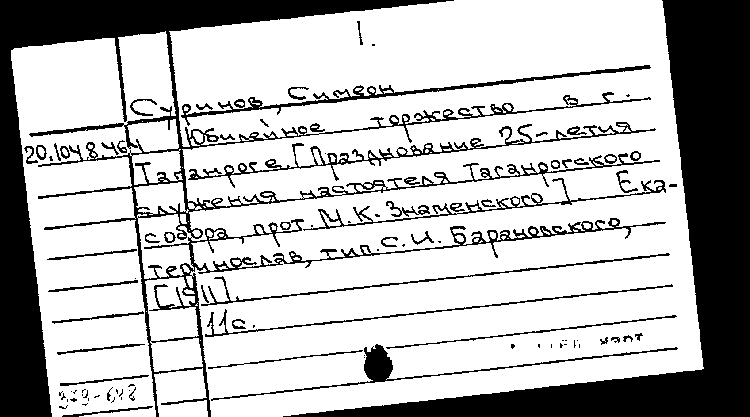 I.
Суринов, Симеон
20.1048.464 Юбилейное торжество в г.
Таганроге. [Празднование 25-летия
служения настоятеля Таганрогского
собора, прот. М.К. Знаменского]. Ека-
теринослав, тип. С.И. Барановского,
[1911].
11 с.
373-648